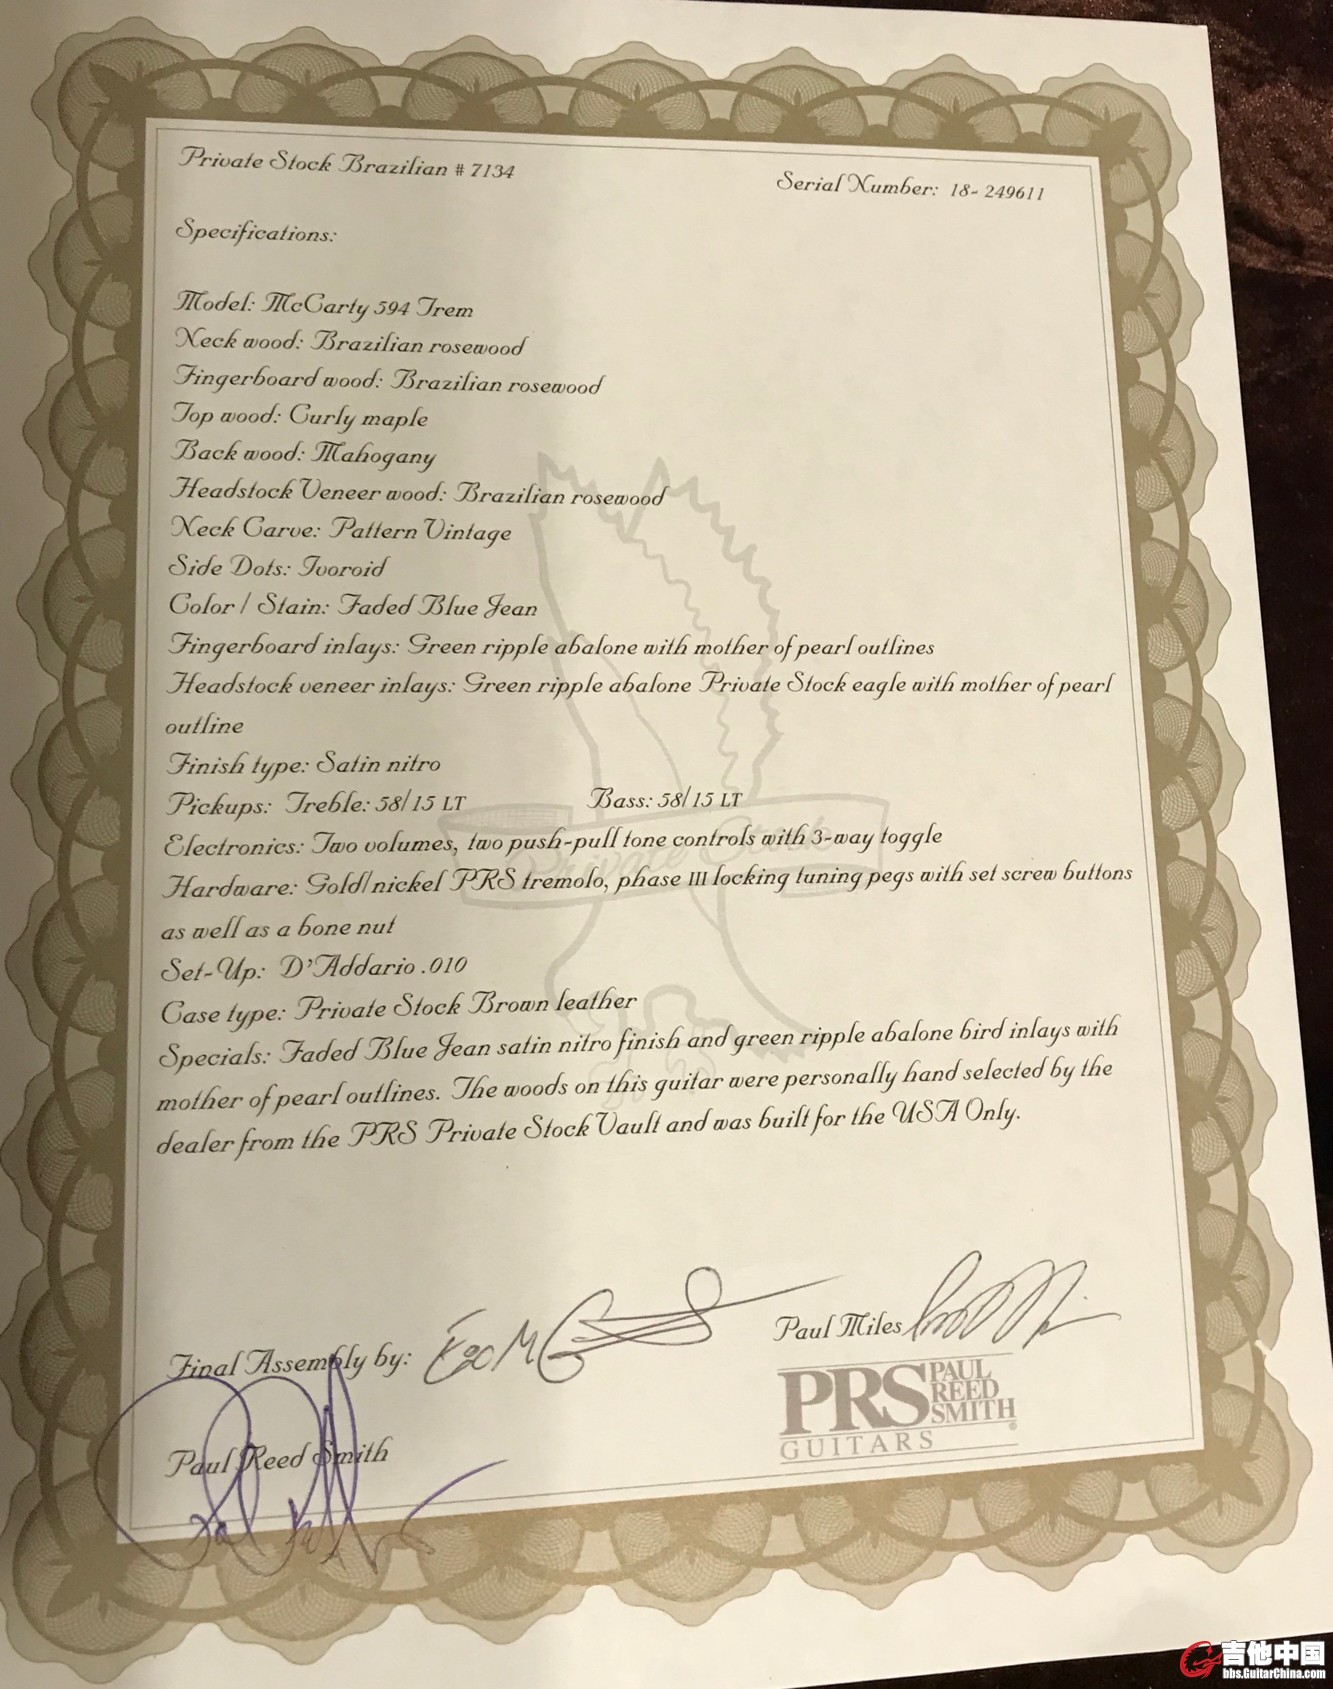 Private Stock Brazilian # 7134
Serial Number: 18- 249611
Specifications:
Model: McCarty 594 Trem
Neck wood: Brazilian rosewood
Fingerboard wood: Brazilian rosewood
Top wood: Curly maple
Back wood: Mahogany
Headstock Veneer wood: Brazilian rosewood
Neck Carve: Pattern Vintage
Side Dots: Ivoroid
Color / Stain: Faded Blue Jean
Fingerboard inlays: Green ripple abalone with mother of pearl outlines
Headstock veneer inlays: Green ripple abalone Private Stock eagle with mother of pearl
outline
Finish type: Satin nitro
Pickups: Treble: 58/15 LT Bass: 58/15 LT
Electronics: Two volumes, two push-pull tone controls with 3-way toggle
Private Stock
Hardware: Gold/nickel PRS tremolo, phase III locking tuning pegs with set screw buttons
as well as a bone nut
Set-Up: D'Addario .010
Case type: Private Stock Brown leather
Specials: Faded Blue Jean satin nitro finish and green ripple abalone bird inlays with
mother of pearl outlines. The woods on this guitar were personally hand selected by the
dealer from the PRS Private Stock Vault and was built for the USA Only.
Final Assembly by:
Paul Miles
PRS PAUL REED SMITH
GUITARS
Paul Reed Smith
吉他中国
bbs.GuitarChina.com